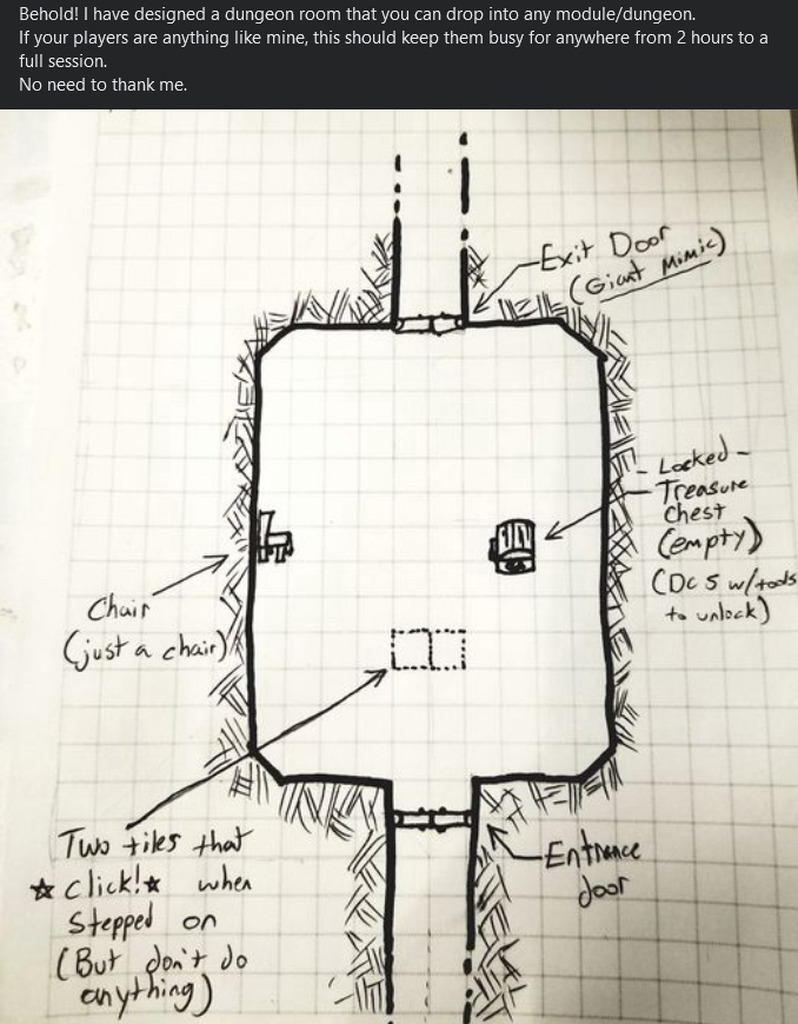 Behold! I have designed a dungeon room that you can drop into any module/dungeon.
If your players are anything like mine, this should keep them busy for anywhere from 2 hours to a
full session.
No need to thank me.
Exit Door
(Giant Mimic)
- Locked -
Treasure
Chest
(empty)
(DC 5 w/tools
to unlock)
Chair
(just a chair)
Two tiles that
☆ click!☆ when
stepped on
(But don't do
anything)
Entrance
door